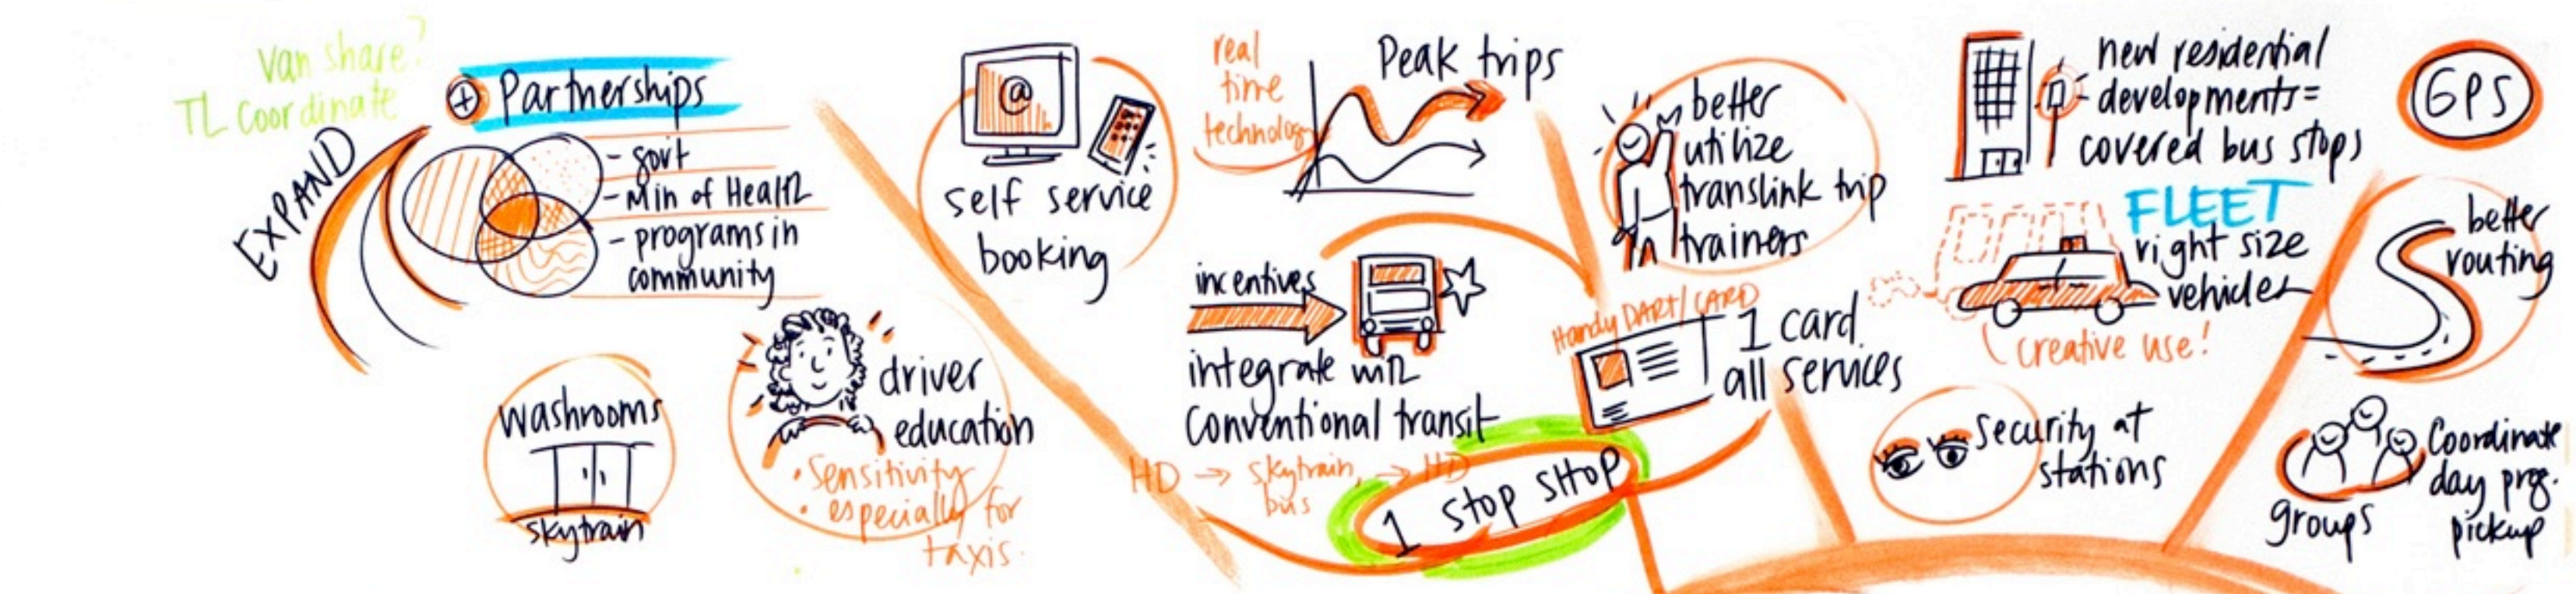 van share?
TL coordinate
EXPAND
+ Partnerships
- govt
- Min of Health
- programs in
community
washrooms
skytrain
driver
education
• Sensitivity
• especially for
taxis.
@
self service
booking
real
time
technology
Peak trips
incentives
integrate with
Conventional transit
HD → skytrain, → HD
bus
1 stop shop
better
utilize
translink trip
trainers
Handy DART/CARD
1 card
all services
new residential
developments=
covered bus stops
FLEET
right size
vehicles
creative use!
Security at
stations
GPS
better
routing
groups
Coordinate
day prg.
pickup